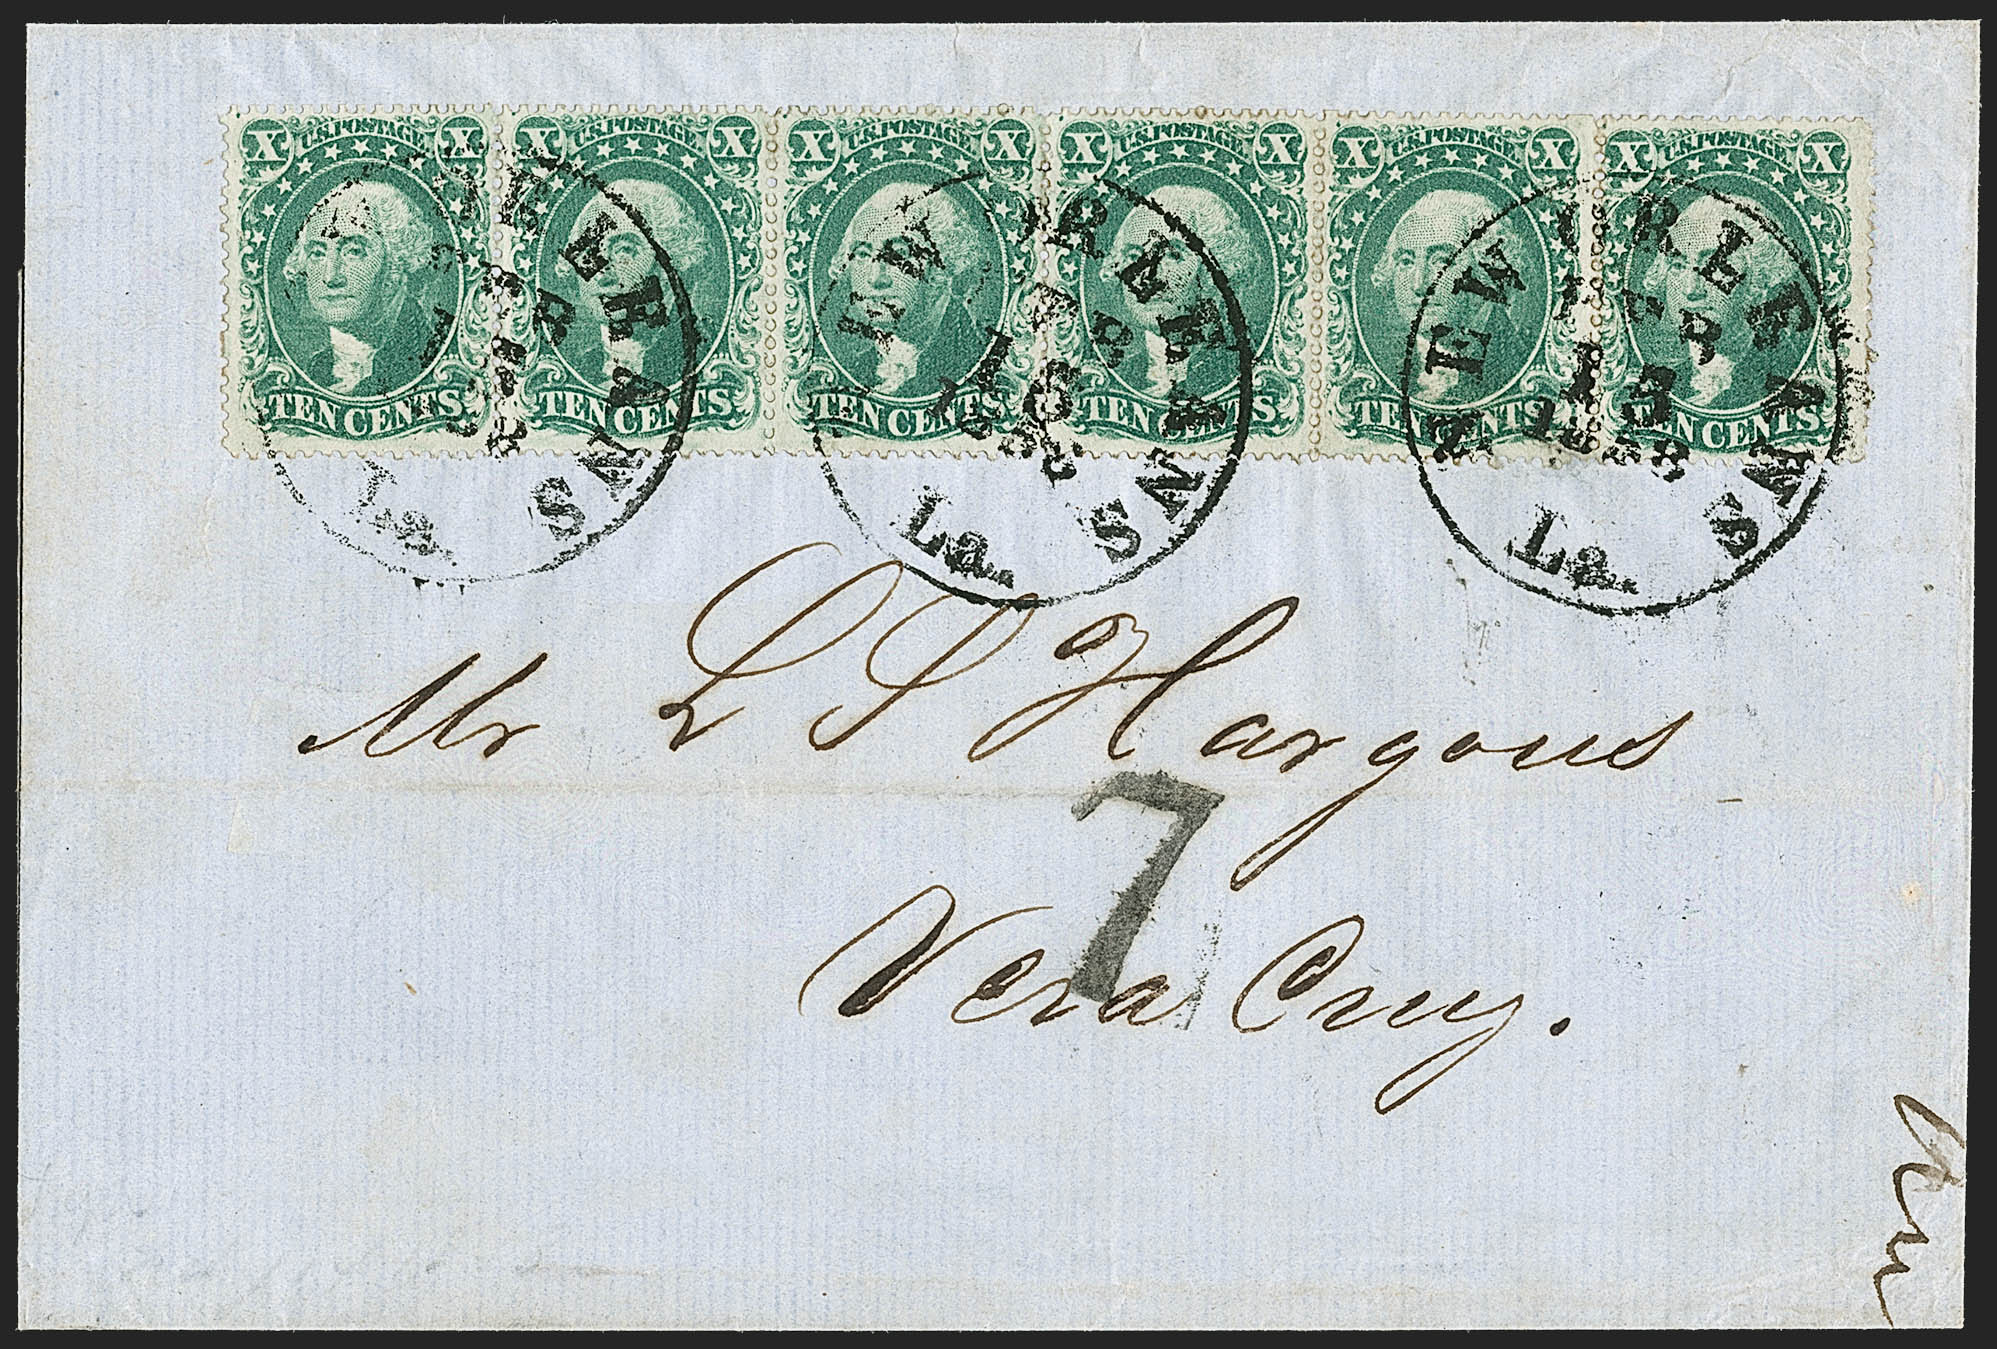 X U.S. POSTAGE. X X U.S. POSTAGE. X X U.S. POSTAGE. X X U.S. POSTAGE. X X U.S. POSTAGE. X X U.S. POSTAGE. X
TEN CENTS. TEN CENTS. TEN CENTS. TEN CENTS. TEN CENTS. TEN CENTS.
NEW ORLEANS La.
NEW ORLEANS La.
NEW ORLEANS La.
Mr L S Hargous
7
Vera Cruz.